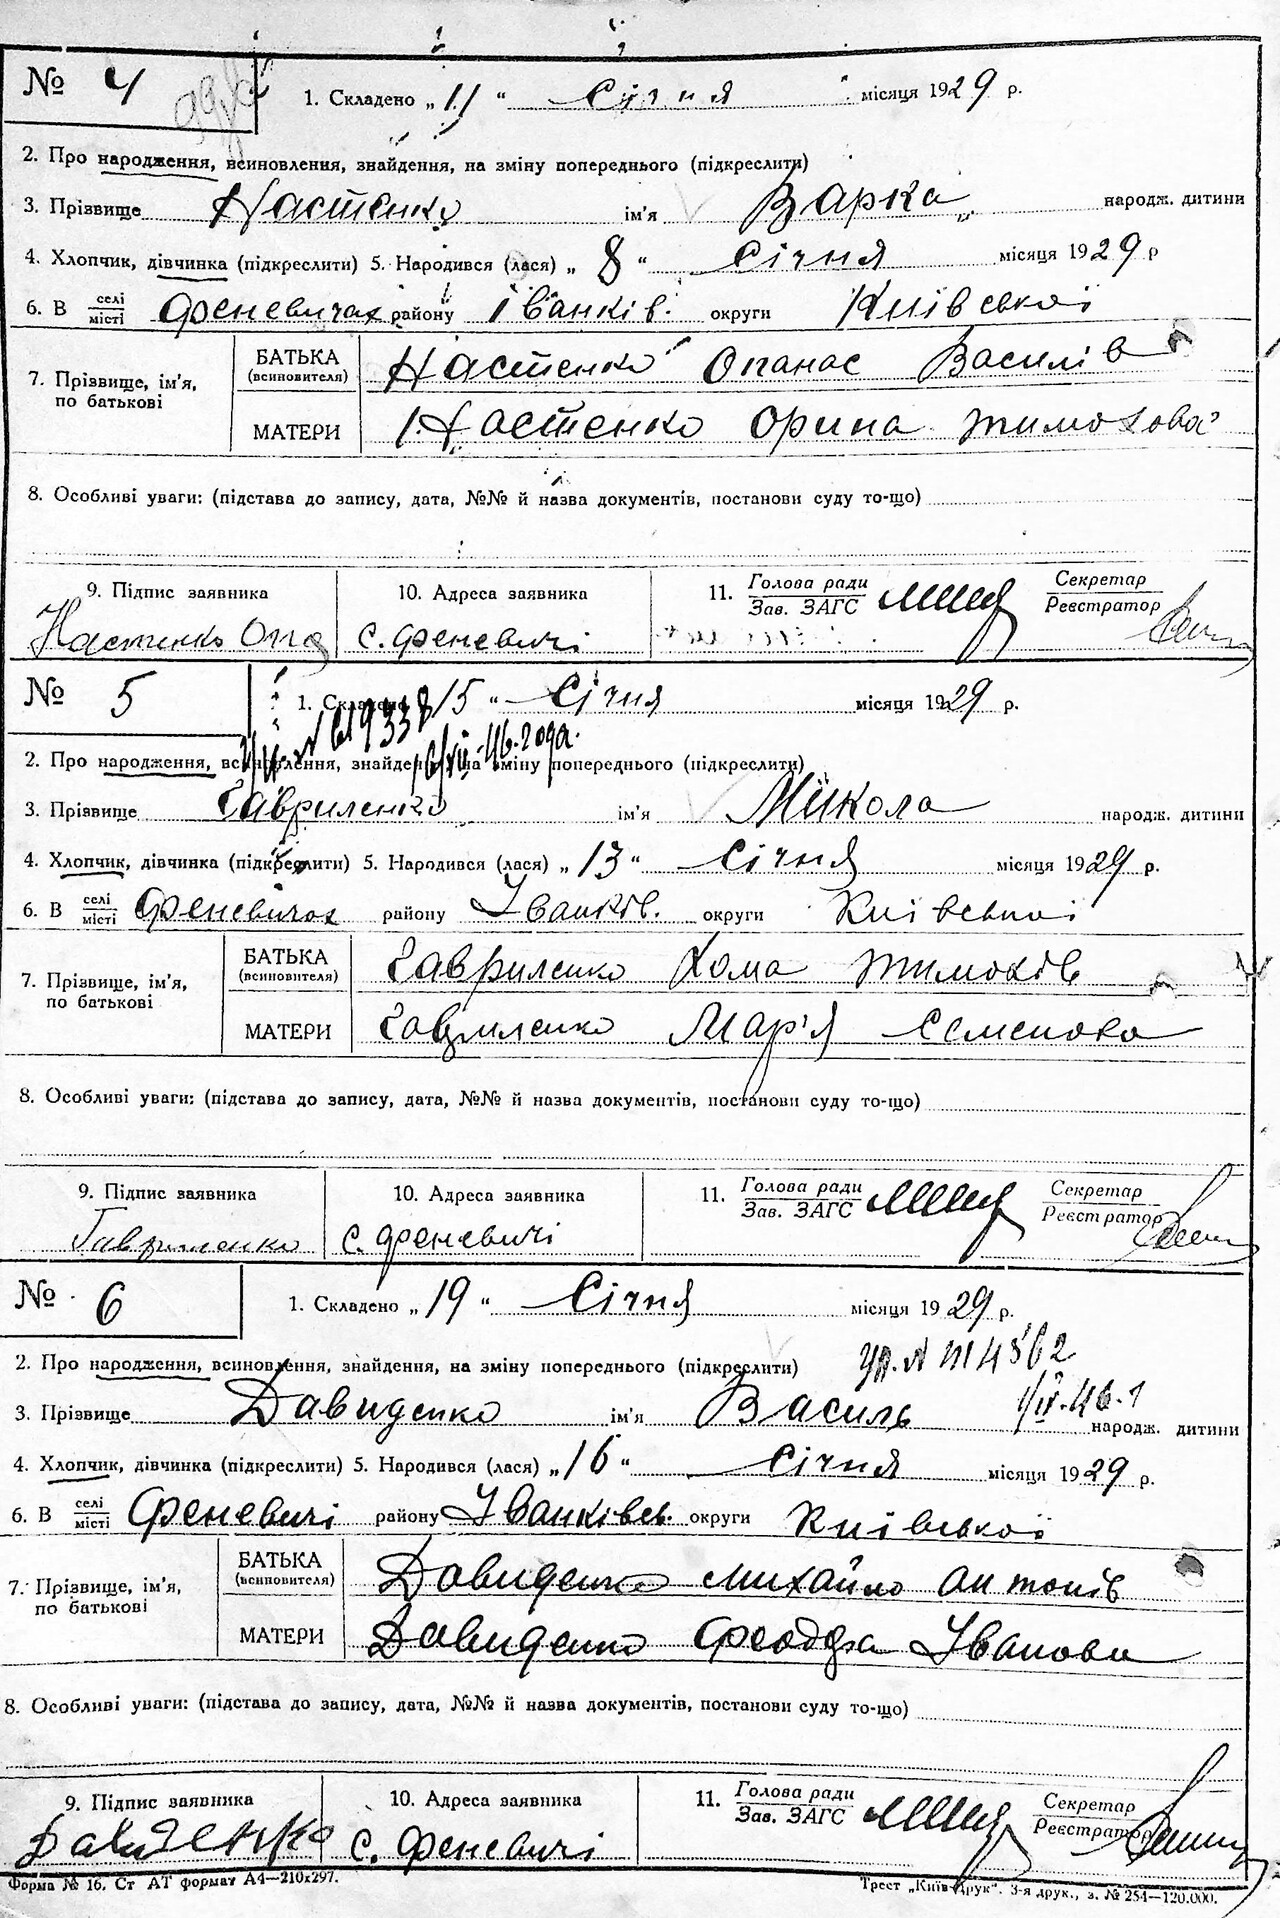 № 4
1. Складено „ 11 “ Січня місяця 1929 р.
2. Про народження, всиновлення, знайдення, на зміну попереднього (підкреслити)
3. Прізвище Настенко ім'я Варка народж. дитини
4. Хлопчик, дівчинка (підкреслити) 5. Народився (лася) „ 8 “ Січня місяця 1929 р
6. В селі/місті Феневичах району Іванків. округи Київської
7. Прізвище, ім'я, по батькові
БАТЬКА (всиновителя) Настенко Опанас Василів
МАТЕРИ Настенко Орина Тимохова
8. Особливі уваги: (підстава до запису, дата, №№ й назва документів, постанови суду то-що)
9. Підпис заявника 10. Адреса заявника 11. Голова ради Секретар
Зав. ЗАГС Реєстратор
Настенко Опа с. Феневичі
№ 5
1. Складено 15 “ Січня місяця 1929 р.
46. года.
2. Про народження, всиновлення, знайдення, на зміну попереднього (підкреслити)
3. Прізвище Гавриленко ім'я Микола народж. дитини
4. Хлопчик, дівчинка (підкреслити) 5. Народився (лася) „ 13 “ Січня місяця 1929 р.
6. В селі/місті Феневичах району Іванків. округи Київської
7. Прізвище, ім'я, по батькові
БАТЬКА (всиновителя) Гавриленко Хома Тимохів
МАТЕРИ Гавриленко Мар'я Семенова
8. Особливі уваги: (підстава до запису, дата, №№ й назва документів, постанови суду то-що)
9. Підпис заявника 10. Адреса заявника 11. Голова ради Секретар
Зав. ЗАГС Реєстратор
Гавриленко с. Феневичі
№ 6
1. Складено „ 19 “ Січня місяця 1929 р.
2. Про народження, всиновлення, знайдення, на зміну попереднього (підкреслити)
3. Прізвище Давиденко ім'я Василь народж. дитини
4. Хлопчик, дівчинка (підкреслити) 5. Народився (лася) „ 16 “ Січня місяця 1929 р.
6. В селі/місті Феневичі району Іванківсь. округи Київської
7. Прізвище, ім'я, по батькові
БАТЬКА (всиновителя) Давиденко Михайло Антонів
МАТЕРИ Давиденко Феодора Іванова
8. Особливі уваги: (підстава до запису, дата, №№ й назва документів, постанови суду то-що)
9. Підпис заявника 10. Адреса заявника 11. Голова ради Секретар
Зав. ЗАГС Реєстратор
Давиденко с. Феневичі
Форма № 16. Ст АТ формат А4—210х297. Трест „Київ-Друк“. 3-я друк., з. № 254—120.000.